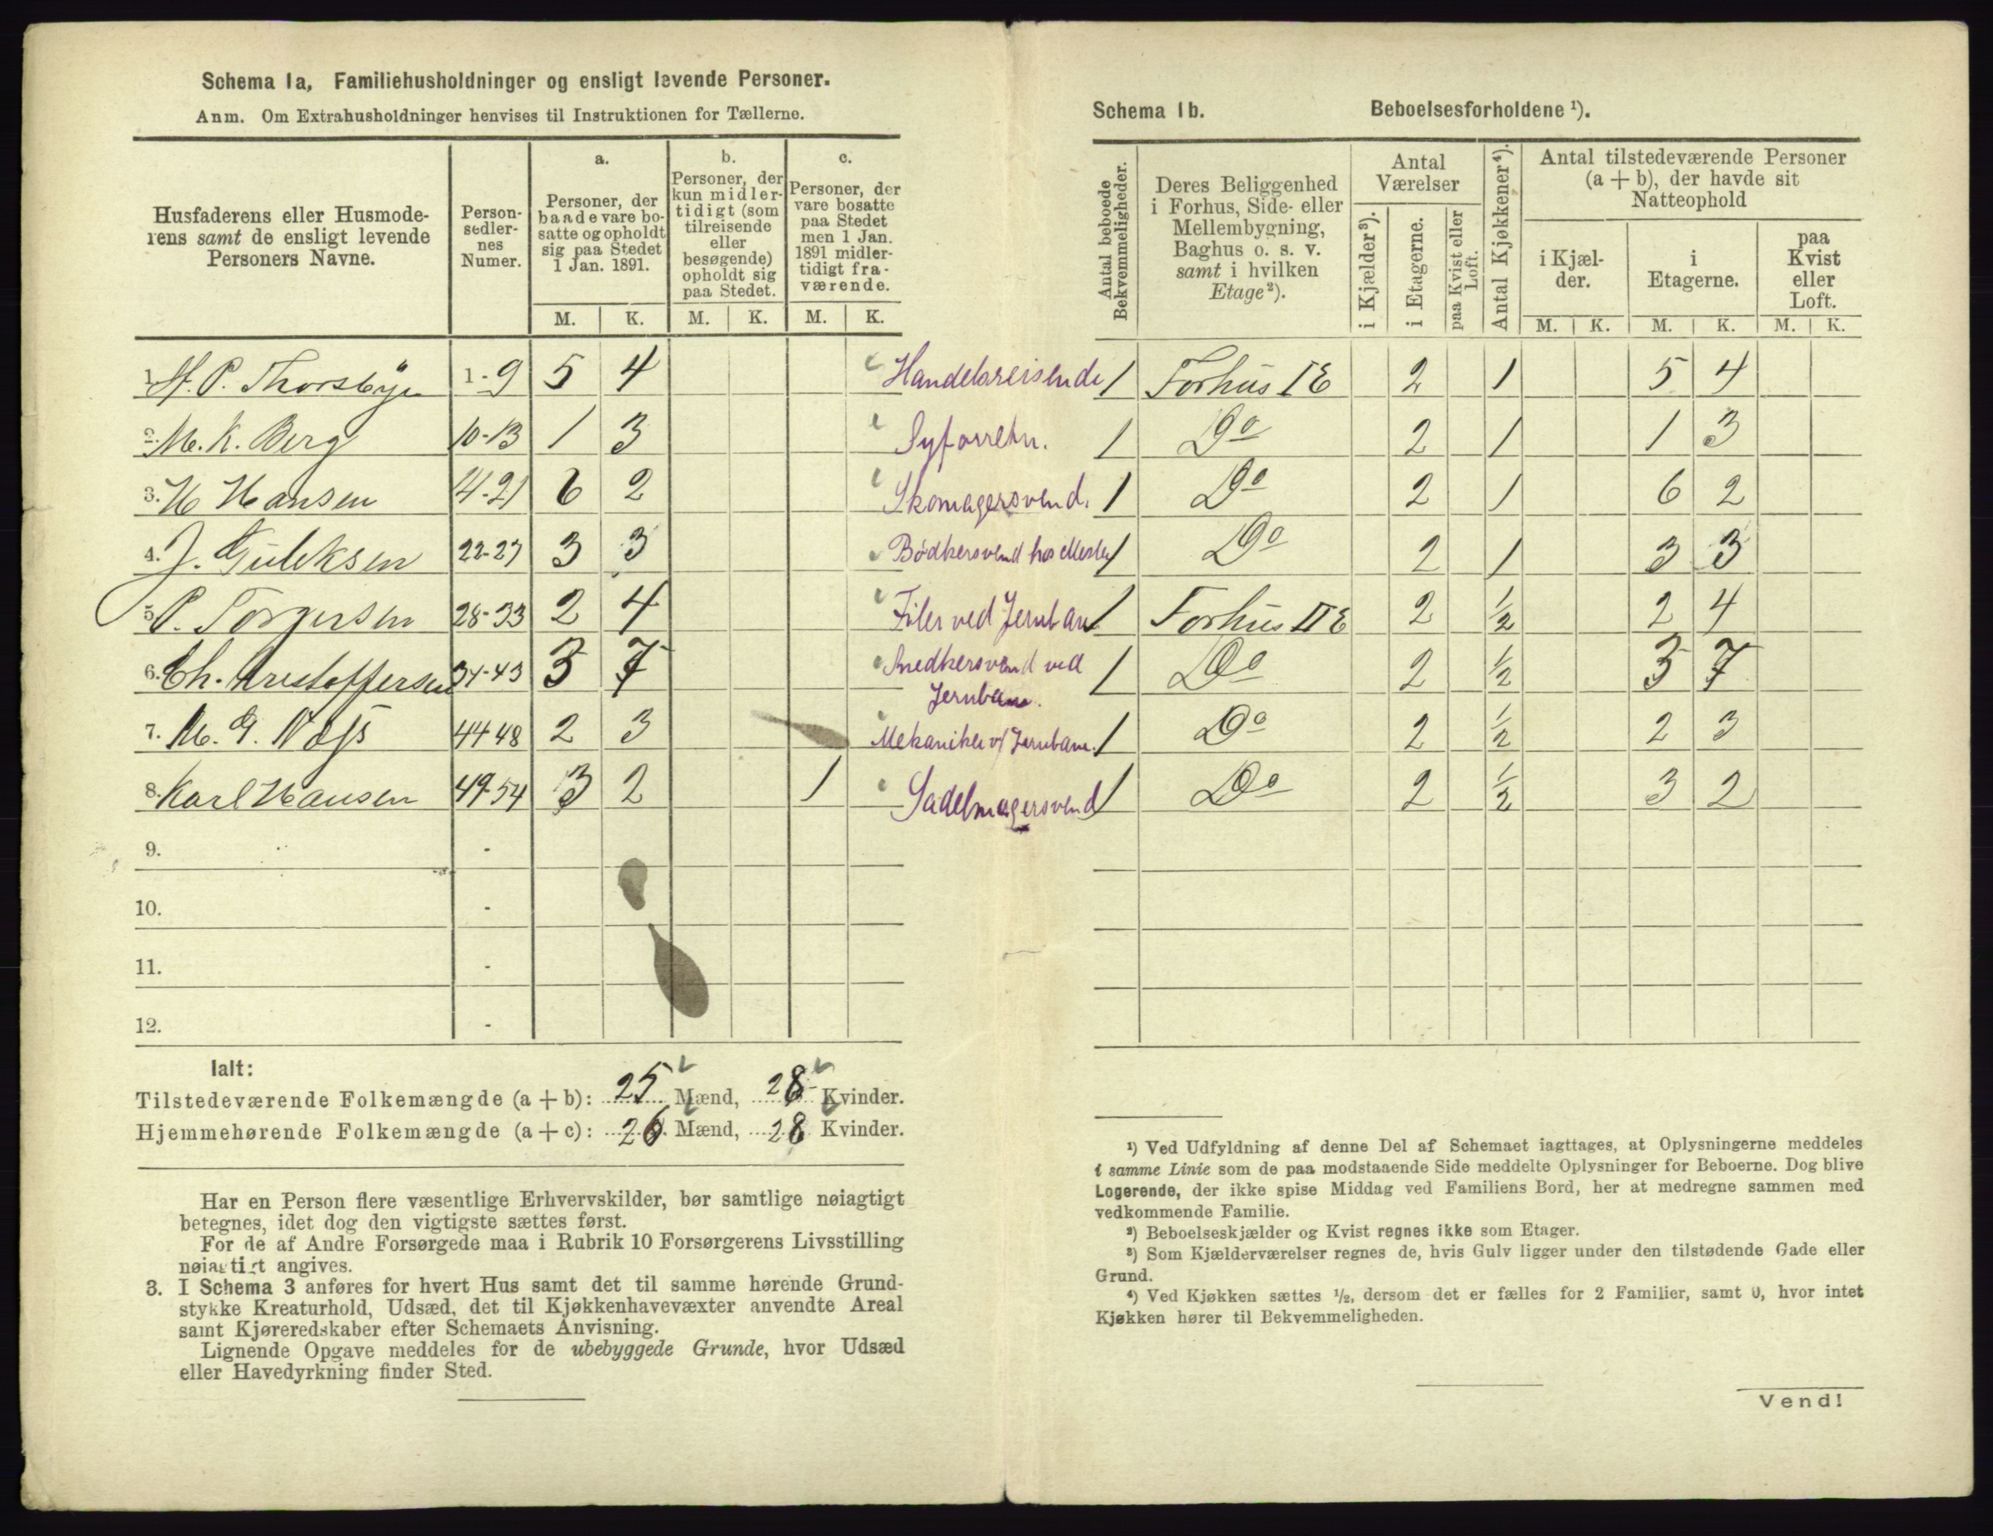 Schema 1a, Familiehusholdninger og ensligt levende Personer.
Anm. Om Extrahusholdninger henvises til Instruktionen for Tællerne.
Husfaderens eller Husmode-
rens samt de ensligt levende
Personers Navne.
Person-
sedler-
nes
Numer.
a.
Personer, der
baade vare bo-
satte og opholdt
sig paa Stedet
1 Jan. 1891.
b.
Personer, der
kun midler-
tidigt (som
tilreisende
eller
besøgende)
opholdt sig
paa Stedet.
c.
Personer, der
vare bosatte
paa Stedet
men 1 Jan.
1891 midler-
tidigt fra-
værende.
M. K. M. K. M. K.
1. H. P. Thorsbye 1-9 5 4 Handelsreisende
2. M. K. Berg 10-13 1 3 Syforretn.
3. H Hansen 14-21 6 2 Skomagersvend.
4. J. Guleksen 22-27 3 3 Bødkersvend hos Mester
5. P. Torgersen 28-33 2 4 Filer ved Jernban
6. Ch. Kristoffersen 34-43 3 7 Snedkersvend ved
Jernbane.
7. M. G. Næss 44-48 2 3 Mekaniker v/ Jernbane.
8. Karl Hansen 49-54 3 2 1 Sadelmagersvend
9. -
10. -
11. -
12. -
Ialt:
Tilstedeværende Folkemængde (a + b): 25 Mænd, 28 Kvinder.
Hjemmehørende Folkemængde (a + c): 26 Mænd, 28 Kvinder.
Har en Person flere væsentlige Erhvervskilder, bør samtlige nøiagtigt
betegnes, idet dog den vigtigste sættes først.
For de af Andre Forsørgede maa i Rubrik 10 Forsørgerens Livsstilling
nøiagtigt angives.
3. I Schema 3 anføres for hvert Hus samt det til samme hørende Grund-
stykke Kreaturhold, Udsæd, det til Kjøkkenhavevæxter anvendte Areal
samt Kjøreredskaber efter Schemaets Anvisning.
Lignende Opgave meddeles for de ubebyggede Grunde, hvor Udsæd
eller Havedyrkning finder Sted.
Schema 1b. Beboelsesforholdene ¹).
Antal beboede
Bekvemmeligheder.
Deres Beliggenhed
i Forhus, Side- eller
Mellembygning,
Baghus o. s. v.
samt i hvilken
Etage²).
Antal
Værelser
i Kjælder³).
i Etagerne.
paa Kvist eller
Loft.
Antal Kjøkkener⁴).
Antal tilstedeværende Personer
(a + b), der havde sit
Natteophold
i Kjæl-
der.
i
Etagerne.
paa
Kvist
eller
Loft.
M. K. M. K. M. K.
1 Forhus I E 2 1 5 4
1 Do 2 1 1 3
1 Do 2 1 6 2
1 Do 2 1 3 3
1 Forhus II E 2 1/2 2 4
1 Do 2 1/2 3 7
1 Do 2 1/2 2 3
1 Do 2 1/2 3 2
¹) Ved Udfyldning af denne Del af Schemaet iagttages, at Oplysningerne meddeles
i samme Linie som de paa modstaaende Side meddelte Oplysninger for Beboerne. Dog blive
Logerende, der ikke spise Middag ved Familiens Bord, her at medregne sammen med
vedkommende Familie.
²) Beboelseskjælder og Kvist regnes ikke som Etager.
³) Som Kjælderværelser regnes de, hvis Gulv ligger under den tilstødende Gade eller
Grund.
⁴) Ved Kjøkken sættes ½, dersom det er fælles for 2 Familier, samt 0, hvor intet
Kjøkken hører til Bekvemmeligheden.
Vend!